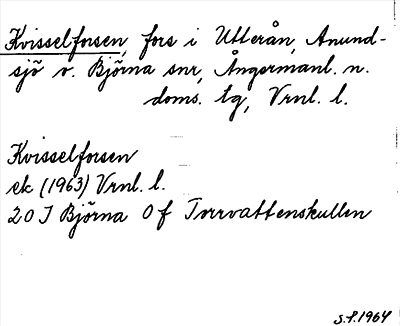 Kvisselforsen, fors i Utterån, Anund-
sjö o. Björna snr, Ångermanl. n.
doms. tg, Vrnl. l.
Kvisselforsen
ek (1963) Vrnl. l.
20 J Björna 0 f Torrvattenskullen
S.F. 1964